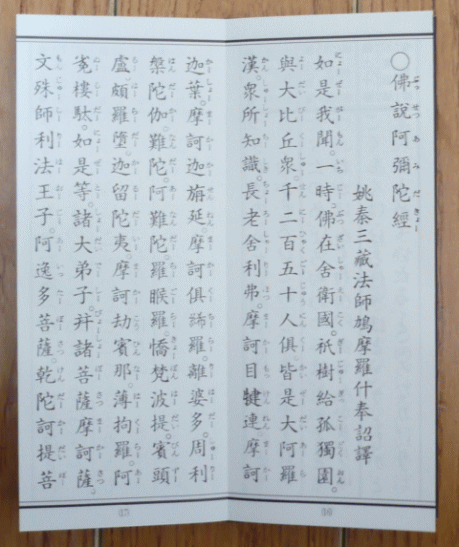 〇佛說阿彌陀經
姚秦三藏法師鳩摩羅什奉詔譯
如是我聞。一時。佛在舍衛國。祇樹給孤獨園。
與大比丘衆。千二百五十人俱皆是大阿羅
漢。衆所知識。長老舍利弗。摩訶目犍連摩訶
迦葉。摩訶迦旃延。摩訶俱絺羅。離婆多。周利
槃陀伽。難陀。阿難陀。羅睺羅。憍梵波提。賓頭
盧頗羅墮。迦留陀夷。摩訶劫賓那。薄拘羅。阿
㝹樓駄。如是等。諸大弟子。幷諸菩薩摩訶薩。
文殊師利法王子。阿逸多菩薩。乾陀訶提菩
36
37